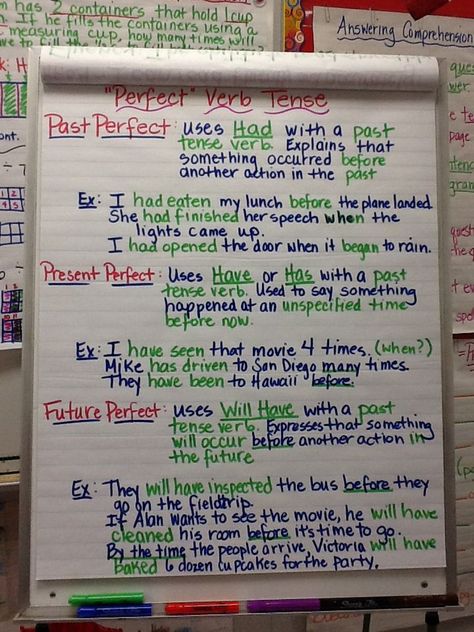 m has 2 containers that hold 1 cup
n. If he fills the containers using a
measuring cup, how many times will
Answering Comprehension
"Perfect" Verb Tense
Past Perfect: uses Had with a past
tense verb. Explains that
something occurred before
another action in the past
Ex: I had eaten my lunch before the plane landed.
She had finished her speech when the
lights came up.
I had opened the door when it began to rain.
Present Perfect: uses Have or Has with a past
tense verb. Used to say something
happened at an unspecified time
before now.
Ex: I have seen that movie 4 times. (when?)
Mike has driven to San Diego many times.
They have been to Hawaii before.
Future Perfect: uses Will Have with a past
tense verb. Expresses that something
will occur before another action in
the future
Ex: They will have inspected the bus before they
go on the fieldtrip.
If Alan wants to see the movie, he will have
cleaned his room before it's time to go.
By the time the people arrive, Victoria will have
baked 6 dozen cupcakes for the party.